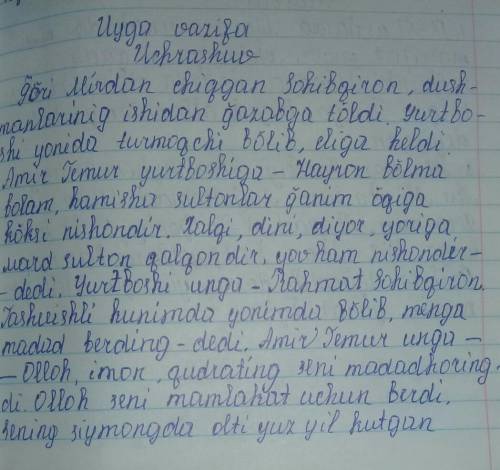 Uyga vazifa
Uchrashuv
Gŏri Mirdan chiqqan Sohibqiron, dush-
manlarinig ishidan ğazabga tŏldi. Yurtbo-
shi yonida turmoqchi bŏlib, eliga keldi.
Amir Temur yurtboshiga - Hayron bŏlma
bolam, hamisha sultonlar ğanim ŏqiga
kŏksi nishondir. Xalqi, dini, diyor, yoriga
mard sulton qalqondir, yov ham nishondir-
- dedi. Yurtboshi unga - Rahmat Sohibqiron.
Tashvishli kunimda yonimda bŏlib, menga
madad berding - dedi. Amir Temur unga -
- Olloh, imon, qudrating seni madadkoring-
di. Olloh seni mamlakat uchun berdi.
Sening siymongda olti yuz yil kutgan